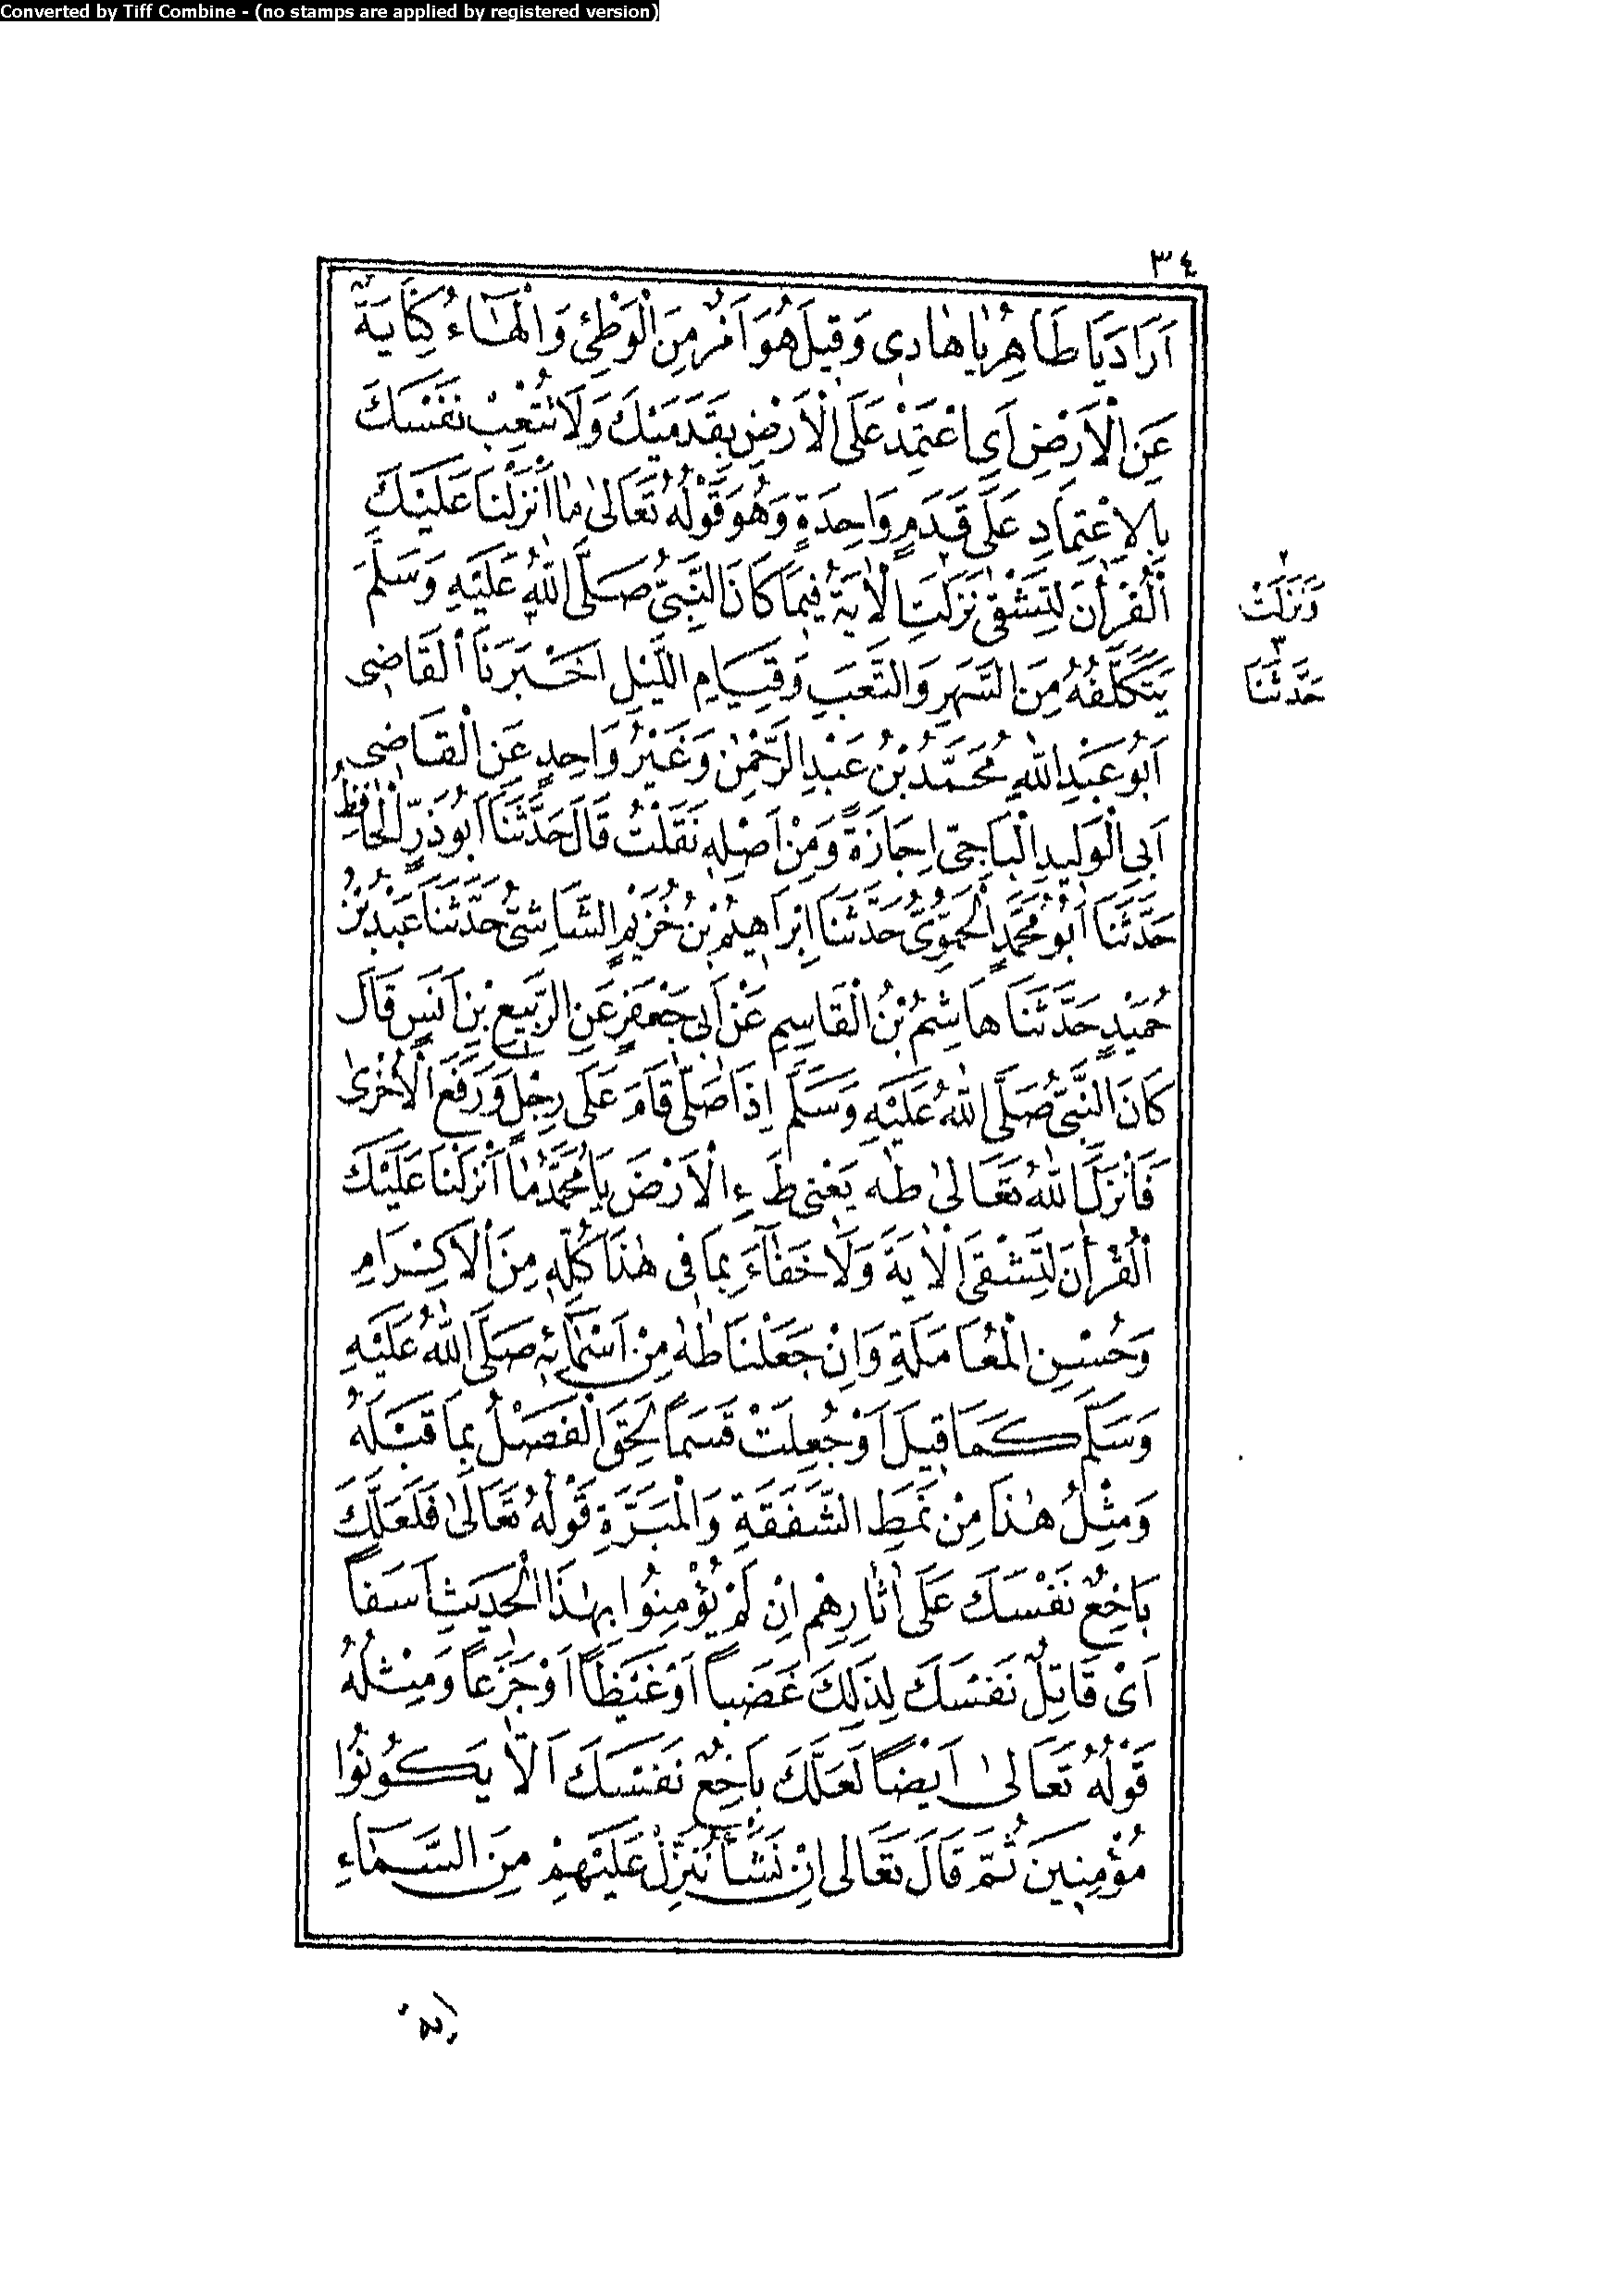 Converted by Tiff Combine - (no stamps are applied by registered version)
٣٤
اَرَادَ يَا طَاهِرُ يَا هَادِى وَقِيلَ هُوَ اَمْرٌ مِنَ الْوَطْئِ وَالْهَاءُ كِنَايَةٌ
عَنِ الْاَرْضِ اَىِ اعْتَمِدْ عَلَى الْاَرْضِ بِقَدَمَيْكَ وَلَا تُتْعِبْ نَفْسَكَ
بِالِاعْتِمَادِ عَلَى قَدَمٍ وَاحِدَةٍ وَهُوَ قَوْلُهُ تَعَالٰى مَا اَنْزَلْنَا عَلَيْكَ
الْقُرْاٰنَ لِتَشْقٰى نَزَلَتِ الْاٰيَةُ فِيمَا كَانَ النَّبِىُّ صَلَّى اللّٰهُ عَلَيْهِ وَسَلَّمَ
يَتَكَلَّفُهُ مِنَ السَّهَرِ وَالتَّعَبِ وَقِيَامِ اللَّيْلِ اَخْبَرَنَا الْقَاضِى
اَبُو عَبْدِ اللّٰهِ مُحَمَّدُ بْنُ عَبْدِ الرَّحْمٰنِ وَغَيْرُ وَاحِدٍ عَنِ الْقَاضِى
اَبِى الْوَلِيدِ الْبَاجِىِّ اِجَازَةً وَمِنْ اَصْلِهِ نَقَلْتُ قَالَ حَدَّثَنَا اَبُو ذَرٍّ الْحَافِظُ
حَدَّثَنَا اَبُو مُحَمَّدٍ الْحَمَوِىُّ حَدَّثَنَا اِبْرَاهِيمُ بْنُ خُزَيْمٍ الشَّاشِىُّ حَدَّثَنَا عَبْدُ بْنُ
حُمَيْدٍ حَدَّثَنَا هَاشِمُ بْنُ الْقَاسِمِ عَنْ اَبِى جَعْفَرٍ عَنِ الرَّبِيعِ بْنِ اَنَسٍ قَالَ
كَانَ النَّبِىُّ صَلَّى اللّٰهُ عَلَيْهِ وَسَلَّمَ اِذَا صَلّٰى قَامَ عَلَى رِجْلٍ وَرَفَعَ الْاُخْرٰى
فَاَنْزَلَ اللّٰهُ تَعَالٰى طٰهٰ يَعْنِى طَءِ الْاَرْضَ يَا مُحَمَّدُ مَا اَنْزَلْنَا عَلَيْكَ
الْقُرْاٰنَ لِتَشْقَى الْاٰيَةَ وَلَا خَفَاءَ بِمَا فِى هٰذَا كُلِّهِ مِنَ الْاِكْرَامِ
وَحُسْنِ الْمُعَامَلَةِ وَاِنْ جَعَلْنَا طٰهٰ مِنْ اَسْمَائِهِ صَلَّى اللّٰهُ عَلَيْهِ
وَسَلَّمَ كَمَا قِيلَ اَوْ جُعِلَتْ قَسَمًا لَحِقَ الْفَصْلُ بِمَا قَبْلَهُ
وَمِثْلُ هٰذَا مِنْ نَمَطِ الشَّفَقَةِ وَالْمَبَرَّةِ قَوْلُهُ تَعَالٰى فَلَعَلَّكَ
بَاخِعٌ نَفْسَكَ عَلَى اٰثَارِهِمْ اِنْ لَمْ يُؤْمِنُوا بِهٰذَا الْحَدِيثِ اَسَفًا
اَىْ قَاتِلٌ نَفْسَكَ لِذَلِكَ غَضَبًا اَوْ غَيْظًا اَوْ جَزَعًا وَمِثْلُهُ
قَوْلُهُ تَعَالٰى اَيْضًا لَعَلَّكَ بَاخِعٌ نَفْسَكَ اَلَّا يَكُونُوا
مُؤْمِنِينَ ثُمَّ قَالَ تَعَالَى اِنْ نَشَأْ نُنَزِّلْ عَلَيْهِمْ مِنَ السَّمَاءِ
٢
وَنَزَلَتْ
٣
حَدَّثَنَا